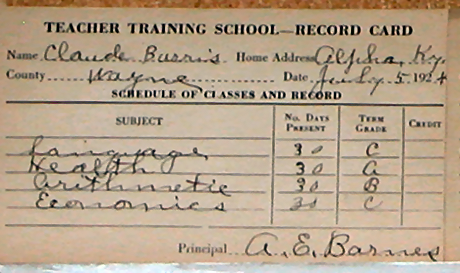 TEACHER TRAINING SCHOOL—RECORD CARD
Name Claude Burris Home Address Alpha, Ky.
County Wayne Date July 5 1924
SCHEDULE OF CLASSES AND RECORD
SUBJECT No. Days Present Term Grade Credit
Language 30 C
Health 30 A
Arithmetic 30 B
Economics 30 C
Principal A. E. Barnes